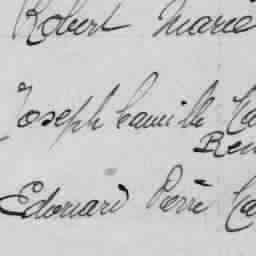 Robert Marie
Joseph Camille Ca
Ren
Edouard Pierre Ca